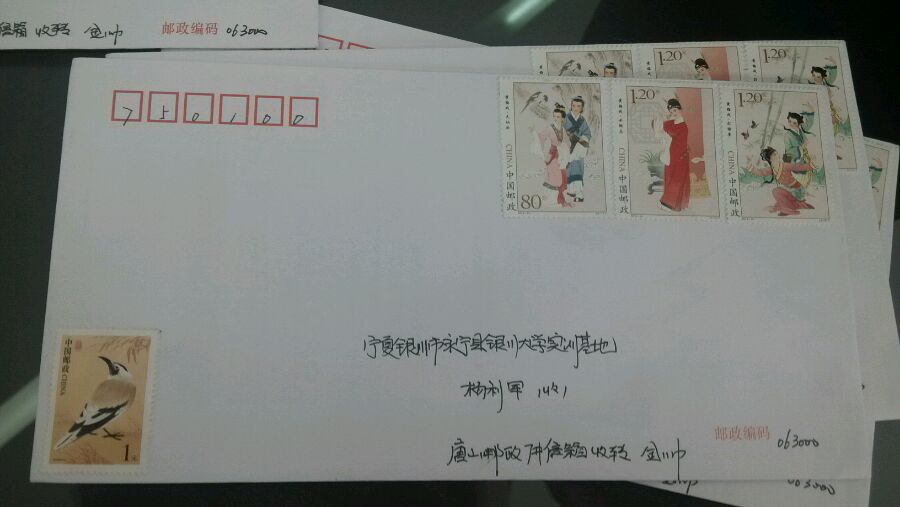 信箱 收转 金帅
邮政编码 063000
750100
1.20
1.20
80
CHINA 中国邮政
1.20
CHINA 中国邮政
1.20
CHINA 中国邮政
中国邮政 CHINA
1元
宁夏银川市永宁县银川大学实训基地
杨利军 (收)
唐山邮政 信箱 收转 金帅
邮政编码 063000
063000